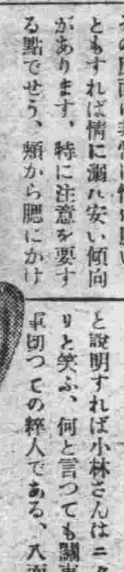 ともすれば情に溺れ安い傾向
があります、特に注意を要す
る點でせう、頬から腮にかけ
と說明すれば小林さんはニタ
リと笑ふ、何と言つても關東
軍切つての粹人である、八面